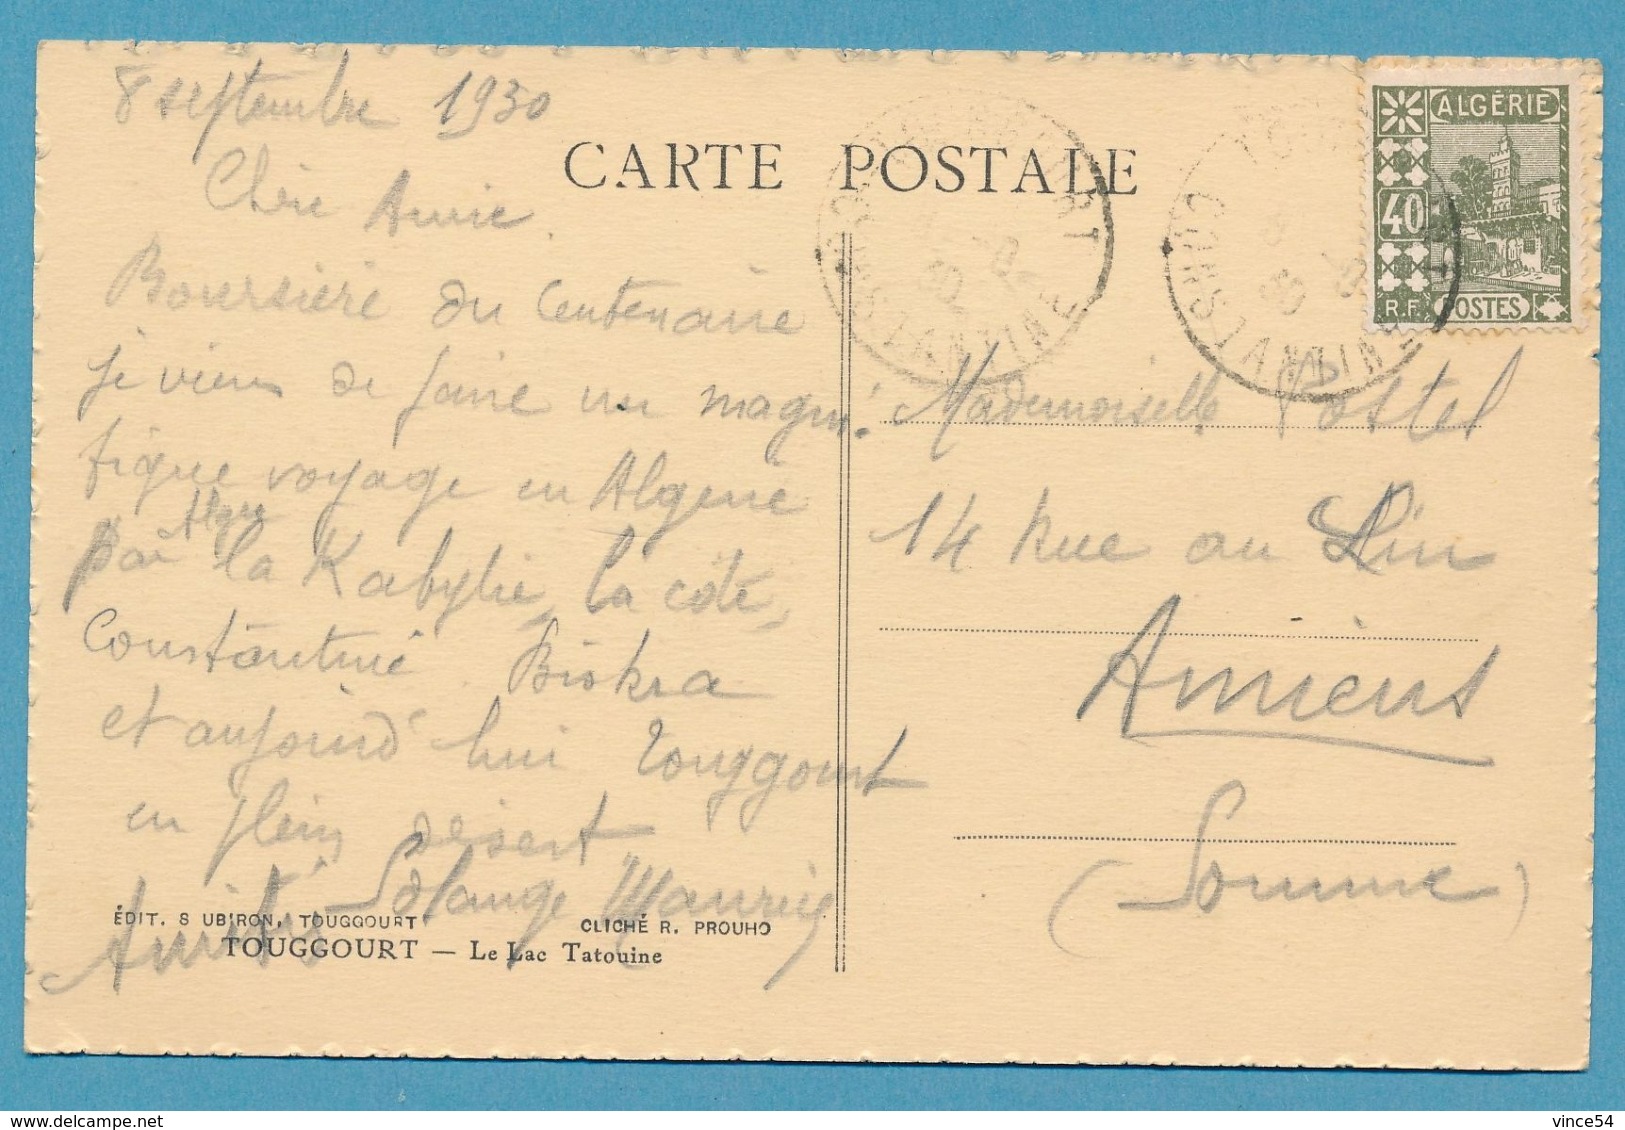 8 septembre 1930
Chère Amie
Boursière du Centenaire
je viens de faire un magni-
fique voyage en Algérie
par Alger la Kabylie, la côte,
Constantine Biskra
et aujourd'hui Touggourt
en plein désert
Amitiés Solange
ÉDIT. S UBIRON, TOUGGOURT
CLICHÉ R. PROUHO
TOUGGOURT — Le Lac Tatouine
CARTE POSTALE
TOUGGOURT
CONSTANTINE
ALGÉRIE
40
R.F. POSTES
CONSTANTINE
Mademoiselle Postel
14 Rue au Lin
Amiens
(Somme)
delcampe.net
vince54